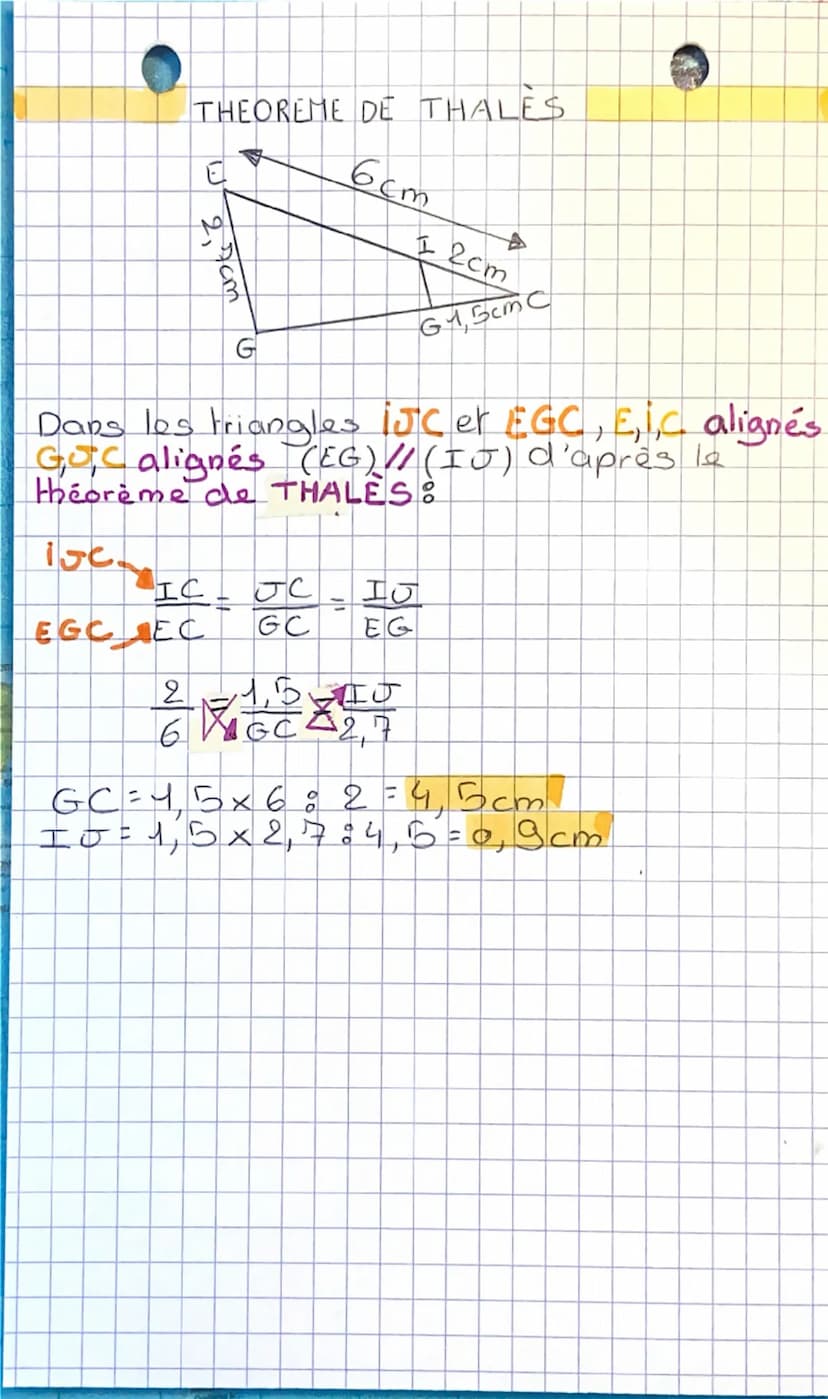 THEOREME DE THALÈS
E
6cm
2,7cm
I 2cm
G 1,5cm C
G
Dans les triangles iJC et EGC, E,i,C alignés
G,J,C alignés (EG) // (IJ) d'après le
théorème de THALÈS :
iJC
IC/EC = JC/GC = IJ/EG
EGC
2/6 = 1,5/GC = IJ/2,7
GC = 1,5 x 6 : 2 = 4,5cm
IJ = 1,5 x 2,7 : 4,5 = 0,9cm